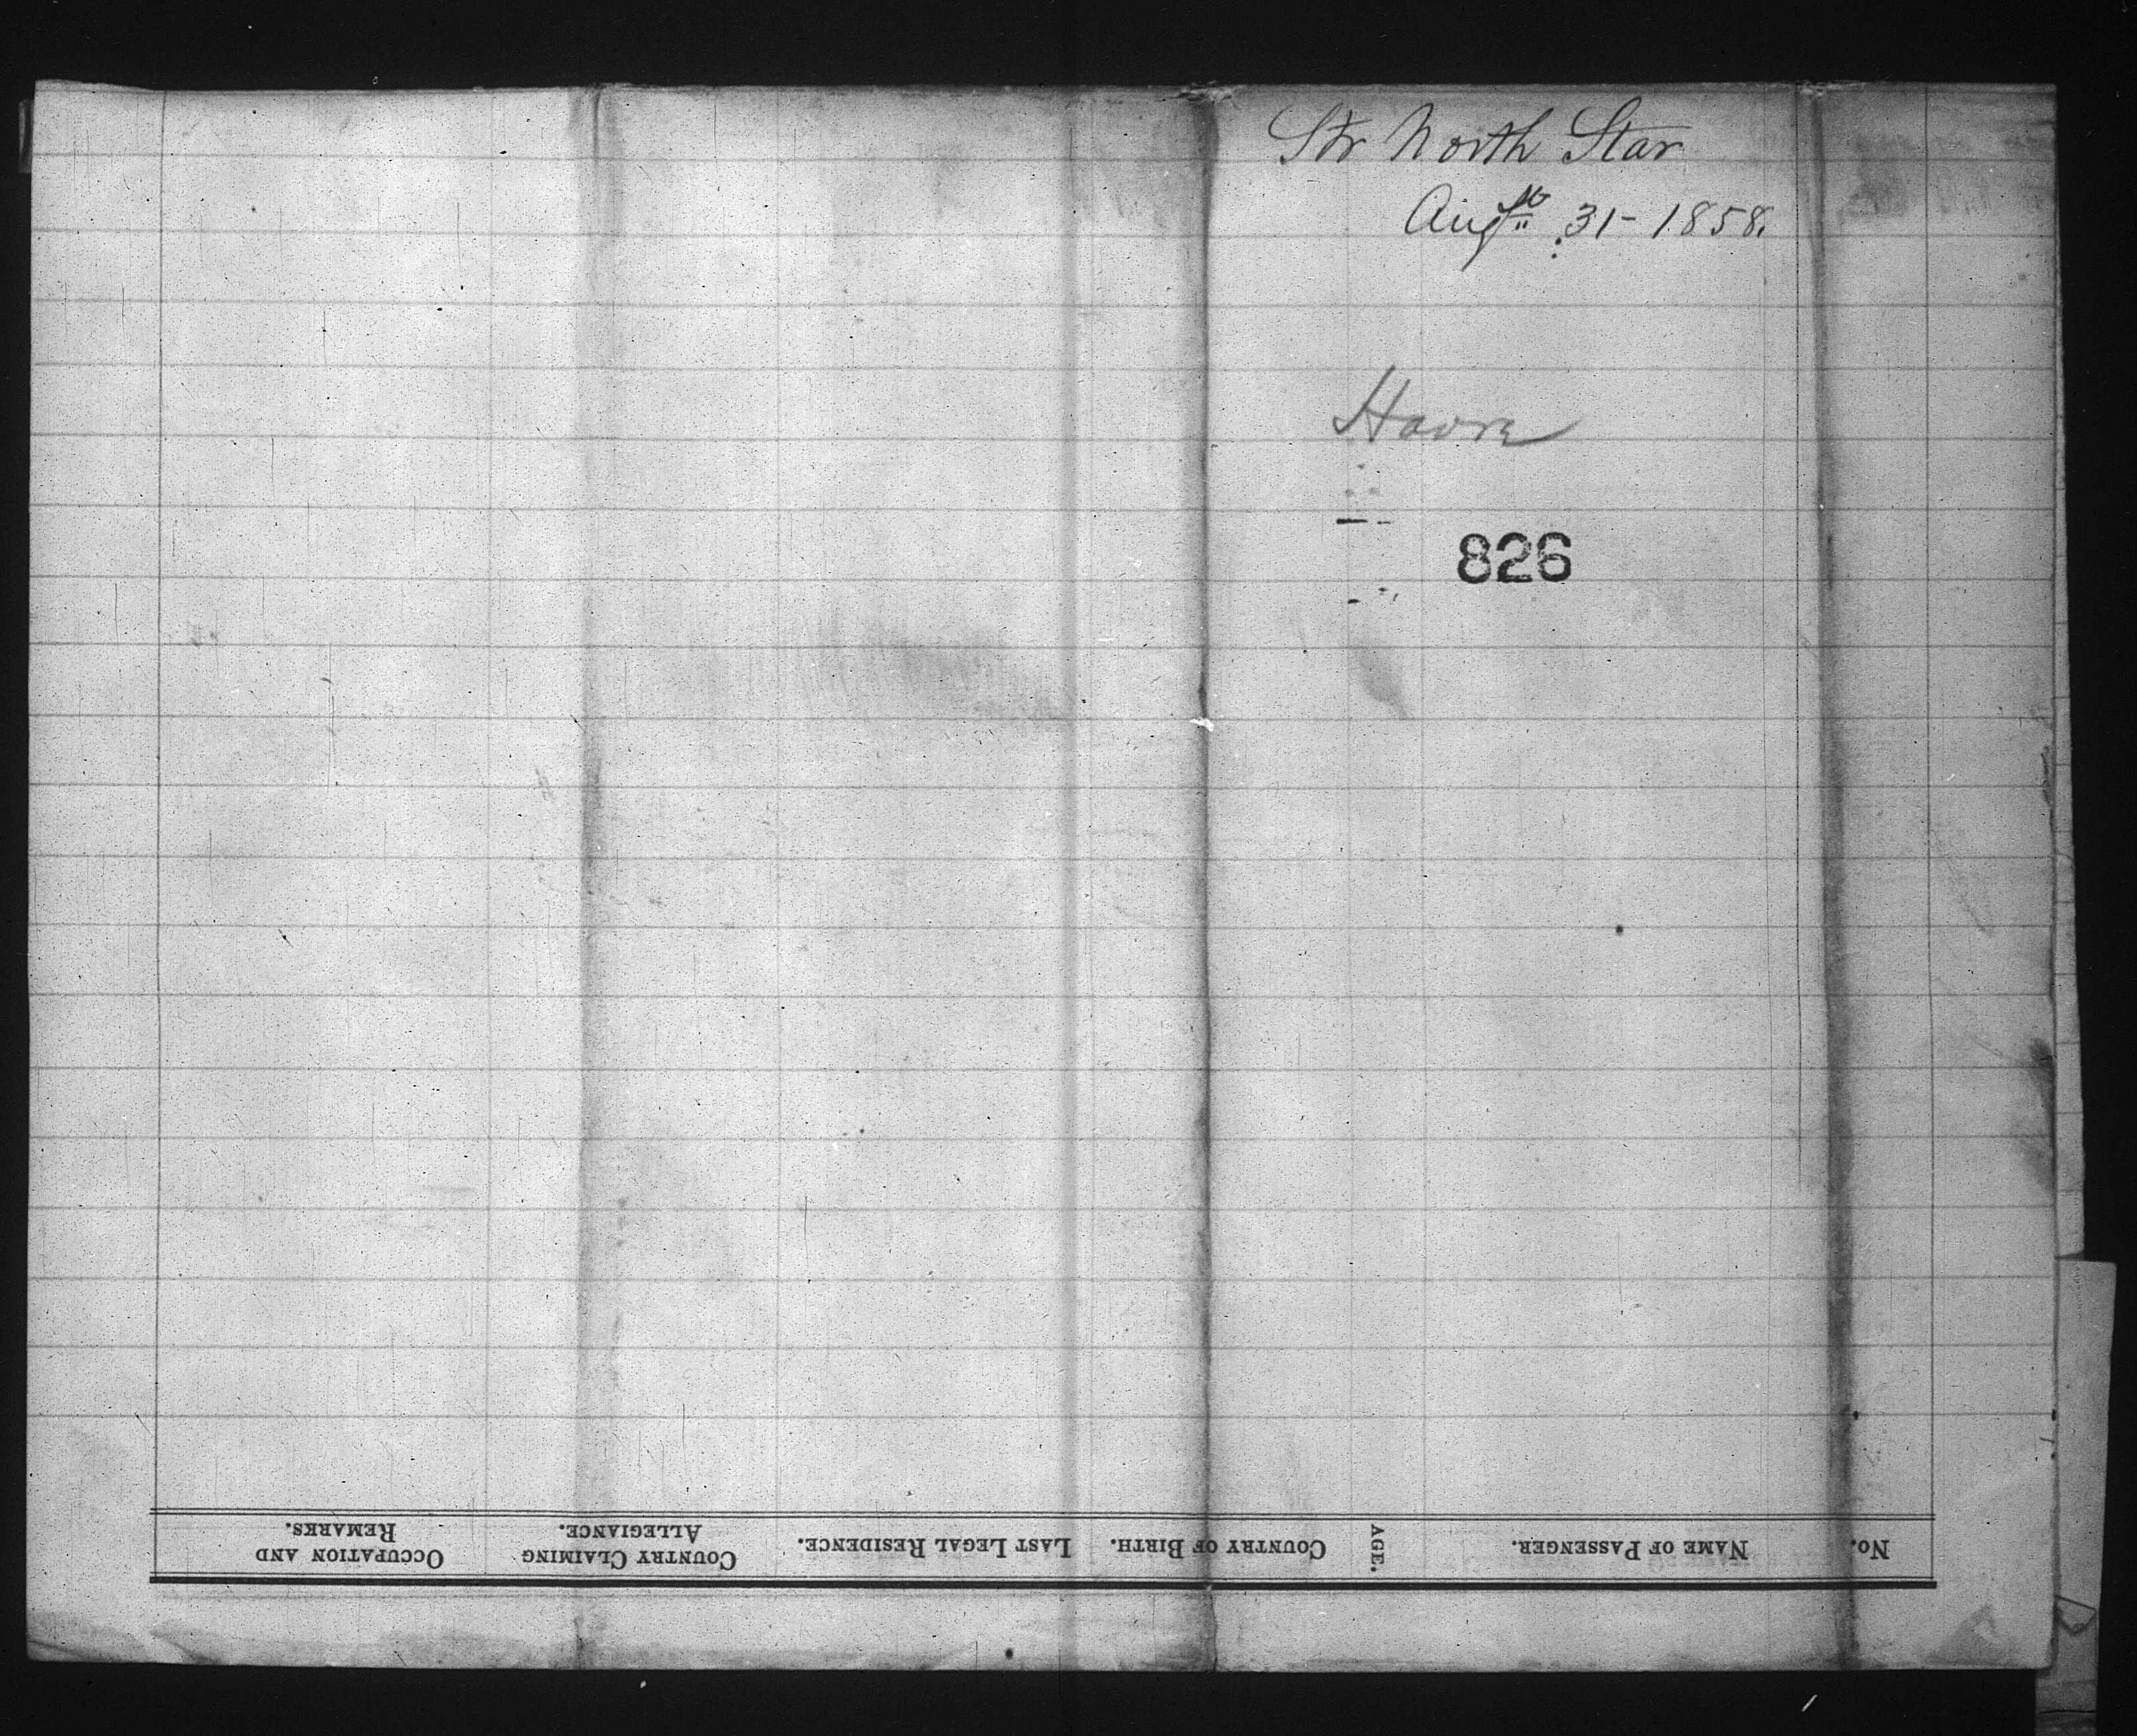 Str North Star
Augst 31 - 1858.
Havre
826
No.
NAME OF PASSENGER.
AGE.
COUNTRY OF BIRTH.
LAST LEGAL RESIDENCE.
COUNTRY CLAIMING
ALLEGIANCE.
OCCUPATION AND
REMARKS.